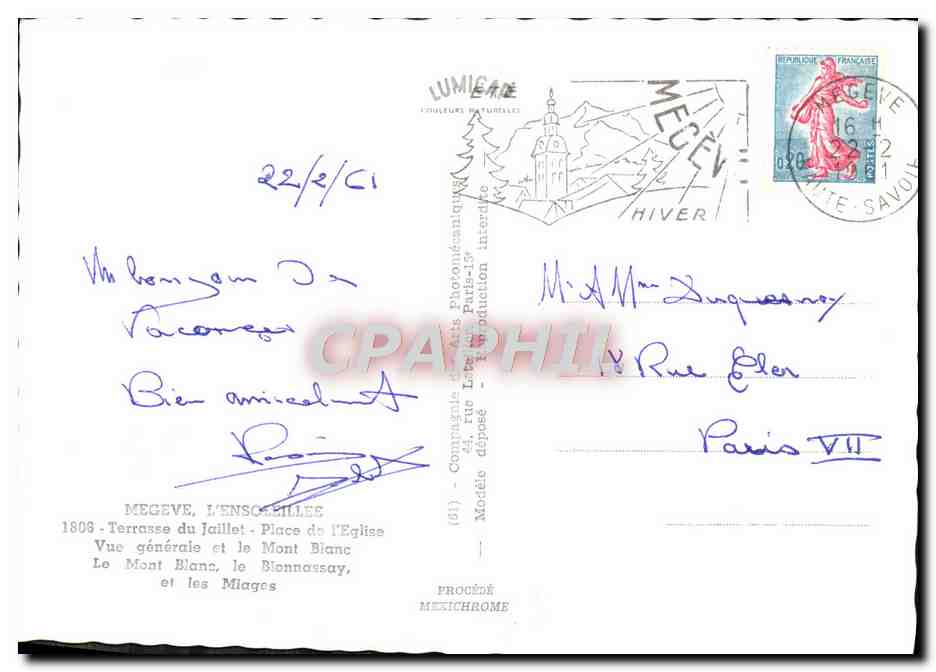 LUMICAP
COULEURS NATURELLES
ETÉ
MEGÈV
HIVER
REPUBLIQUE FRANÇAISE
0,20
POSTES
MEGEVE
16 H
22-2
19 1
HTE-SAVOIE
22/2/61
Un bonjour de
Vacances
Bien amicalement
MEGEVE, L'ENSOLEILLEE
1808 - Terrasse du Jaillet - Place de l'Eglise
Vue générale et le Mont Blanc
Le Mont Blanc, le Bionnassay,
et les Miages
(61) - Compagnie des Arts Photomécaniques
44, rue Letellier, Paris-15e
Modèle déposé - Reproduction interdite
PROCÉDÉ
MEXICHROME
CPAPHIL
Mr & Mme Duquesnoy
Rue Eler
Paris VII